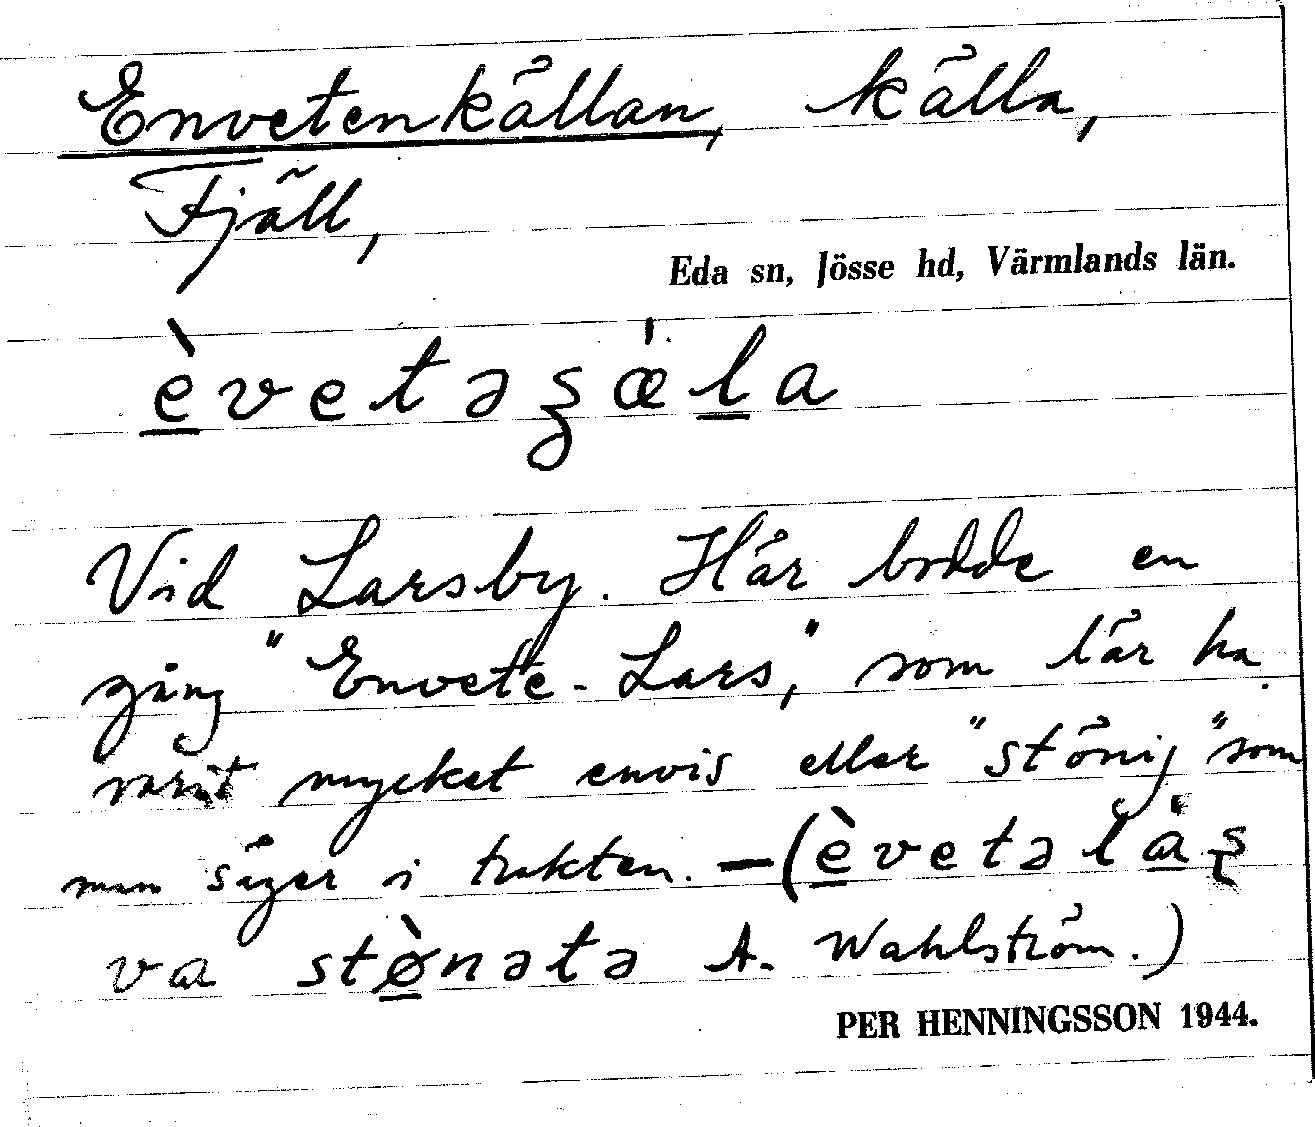 Envetenkällan, källa,
Fjäll,
Eda sn, Jösse hd, Värmlands län.
èvetəʂǽla
Vid Larsby. Här bodde en
gång "Envete-Lars," som lär ha
varit mycket envis eller "stönig" som
man säger i trakten. – (èvetə làʂ
va stø̀nətə A. Wahlström.)
PER HENNINGSSON 1944.